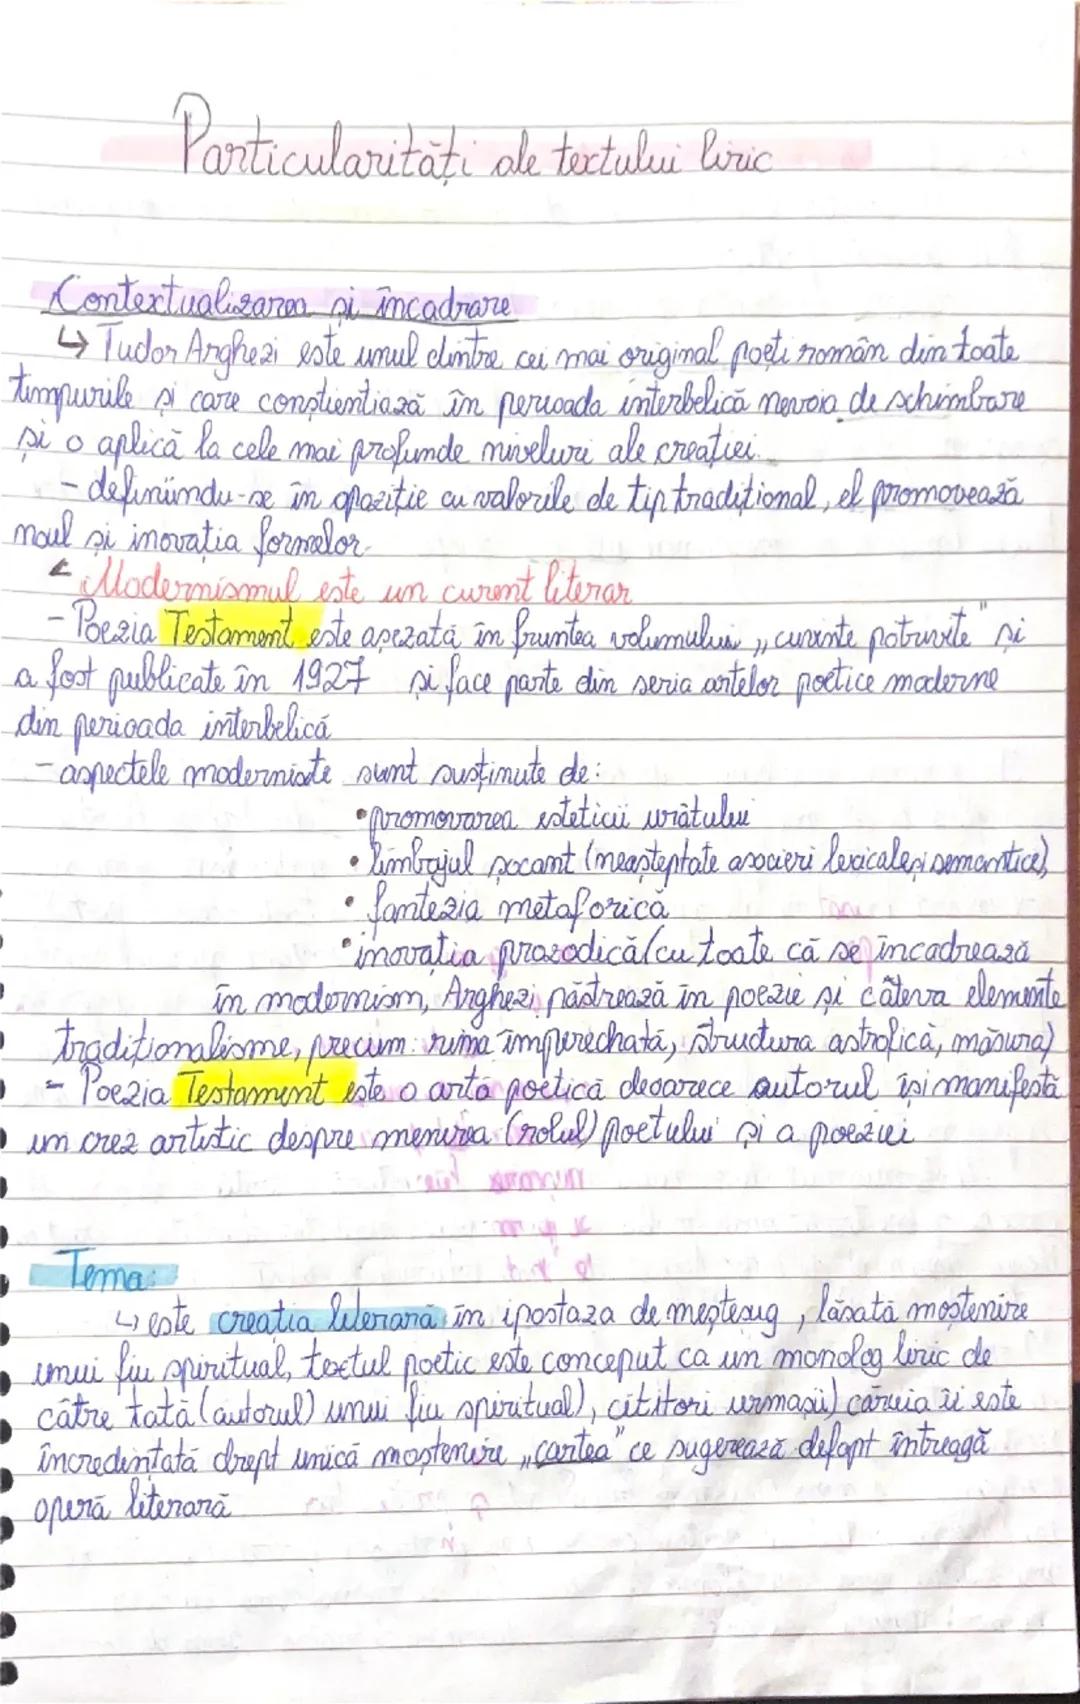 Particularități ale textului liric
Contextualizarea și încadrare
↳ Tudor Arghezi este unul dintre cei mai original poeți român din toate
timpurile și care conștientiază în perioada interbelică nevoia de schimbare
și o aplică la cele mai profunde niveluri ale creației.
- definiindu-se în opoziție cu valorile de tip tradițional, el promovează
noul și inovația formelor.
Modernismul este un curent literar
- Poezia Testament este așezată în fruntea volumului „cuvinte potrivite" și
a fost publicate în 1927 și face parte din seria artelor poetice moderne
din perioada interbelică
- aspectele moderniste sunt susținute de:
• promovarea esteticii urâtului
• limbajul șocant (neașteptate asocieri lexicale și semantice)
• fantezia metaforică
• inovația prozodică (cu toate că se încadrează
în modernism, Arghezi păstrează în poezie și câteva elemente
tradiționalisme, precum: rima împerechată, structura astrofică, măsura)
- Poezia Testament este o artă poetică deoarece autorul își manifestă
un crez artistic despre menirea (rolul) poetului și a poeziei
Tema:
↳ este creația literară în ipostaza de meșteșug, lăsată moștenire
unui fiu spiritual, textul poetic este conceput ca un monolog liric de
către tată (autorul) unui fiu spiritual), cititori urmașii) căruia îi este
încredințată drept unică moștenire „cartea" ce sugerează defapt întreagă
operă literară